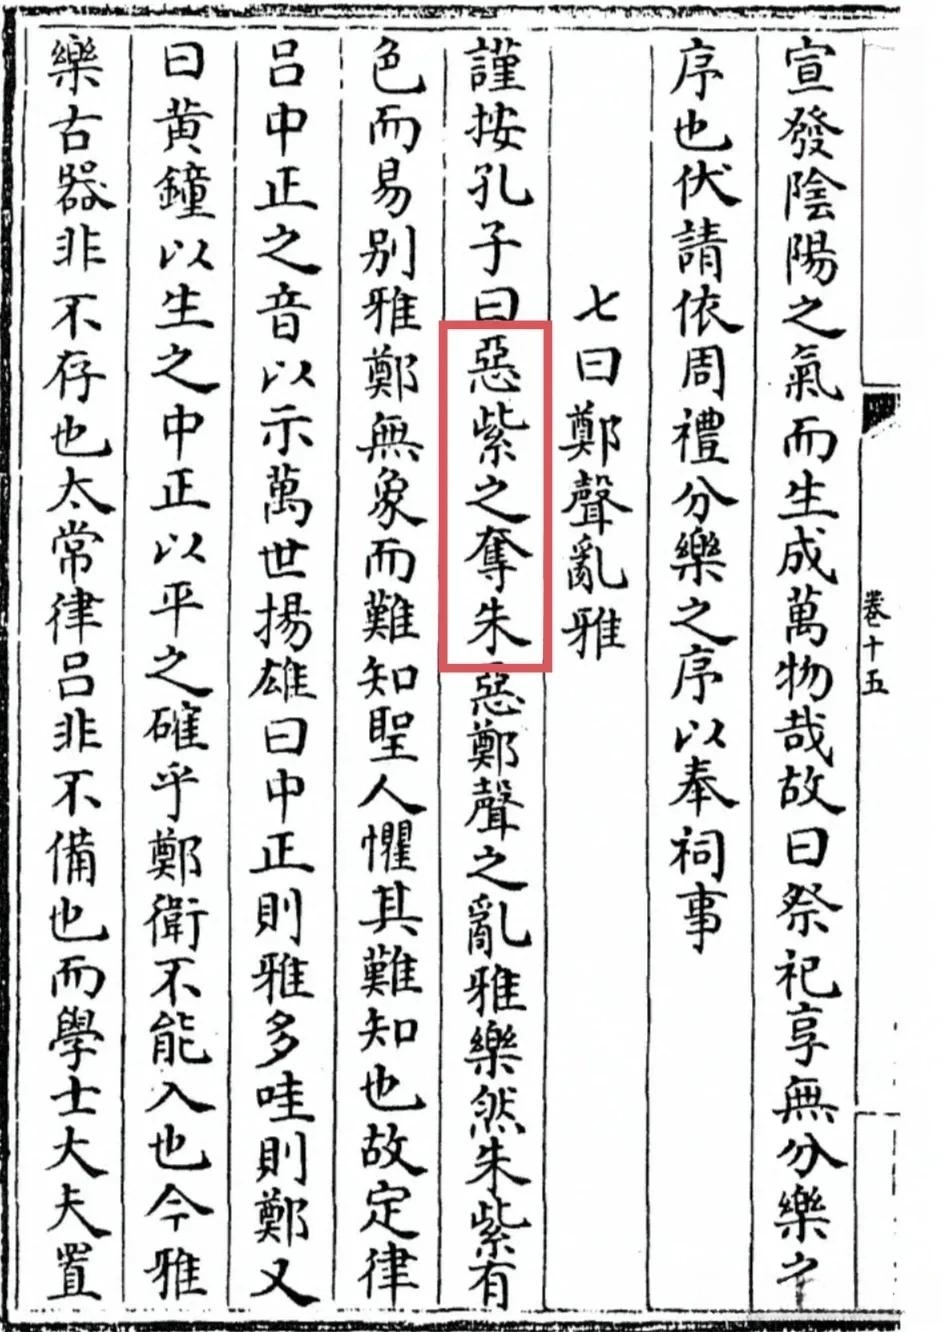 宣發陰陽之氣而生成萬物哉故曰祭祀享無分樂之
序也伏請依周禮分樂之序以奉祠事
七曰鄭聲亂雅
謹按孔子曰惡紫之奪朱惡鄭聲之亂雅樂然朱紫有
色而易别雅鄭無象而難知聖人懼其難知也故定律
呂中正之音以示萬世揚雄曰中正則雅多哇則鄭又
曰黄鐘以生之中正以平之確乎鄭衛不能入也今雅
樂古器非不存也太常律呂非不備也而學士大夫置
卷十五